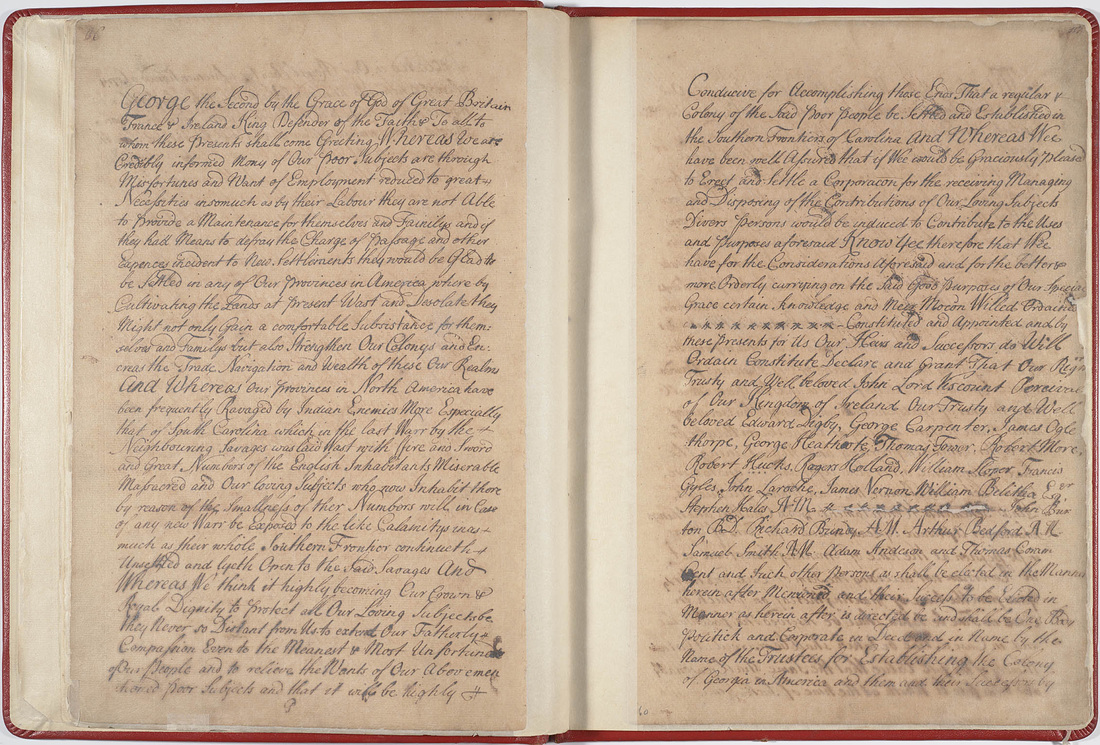 66
George the Second by the Grace of God of Great Britain
France & Ireland King Defender of the Faith & To all to
whom these Presents shall come Greeting Whereas We are
Credibly informed Many of Our Poor Subjects are through
Misfortunes and Want of Employment reduced to great
Necessities insomuch as by their Labour they are not Able
to provide a Maintenance for themselves and Familys and if
they had Means to defray the Charge of Passage and other
Expences incident to New Settlements they would be Glad to
be Settled in any of Our Provinces in America where by
Cultivating the Lands at Present Wast and Desolate they
Might not only Gain a comfortable Subsistance for them:
selves and Familys but also Strengthen Our Colonys and En:
creas the Trade Navigation and Wealth of these Our Realms
And Whereas Our Provinces in North America have
been frequently Ravaged by Indian Enemies More Especially
that of South Carolina which in the last Warr by the
Neighbouring Savages was laid Wast with Fire and Sword
and Great Numbers of the English Inhabitants Miserable
Massacred and Our loving Subjects who now Inhabit there
by reason of the Smallness of ther Numbers will in Case
of any new Warr be Exposed to the like Calamitys inas
much as their whole Southern Frontier continueth
Unsettled and lyeth Open to the Said Savages And
Whereas We think it highly becoming Our Crown &
Royal Dignity to Protect all Our Loving Subjects be
they Never so Distant from Us to extend Our Fatherly
Compassion Even to the Meanest & Most Unfortunate
of Our People and to relieve the Wants of Our Abovemen
tioned Poor Subjects and that it will be highly
Conducive for Accomplishing those Ends That a regular
Colony of the Said Poor People be Settled and Established in
the Southern Frontiers of Carolina And Whereas We
have been well Assured that if We would be Graciously pleased
to Erect and Settle a Corporacon for the receiving Managing
and Disposing of the Contributions of Our Loving Subjects
Divers Persons would be induced to Contribute to the Uses
and Purposes aforesaid Know Yee therefore that We
have for the Considerations Aforesaid and for the better
more Orderly carrying on the Said Good Purposes of Our Special
Grace certain Knowledge and Meer Mocon Willed Ordained
Constituted and Appointed and by
these Presents for Us Our Heirs and Successors do Will
Ordain Constitute Declare and Grant That Our Right
Trusty and Well beloved John Lord Viscount Percival
of Our Kingdom of Ireland Our Trusty and Well
beloved Edward Digby, George Carpenter, James Ogle
thorpe, George Heathcote, Thomas Tower, Robert More,
Robert Hucks, Rogers Holland, William Sloper, Francis
Gyles, John Laroche, James Vernon William Belitha Esqr
Stephen Hales A.M. John Bur
ton B.D. Richard Bundy A.M. Arthur Bedford A.M.
Samuel Smith A.M. Adam Anderson and Thomas Coram
Gent and Such other Persons as shall be elected in the Manner
herein after Mentioned and their Success to be Elected in
Manner as herein after is directed be and shall be One Body
Politick and Corporate in Deed and in Name by the
Name of the Trustees for Establishing the Colony
of Georgia in America and them and their Successors by
60